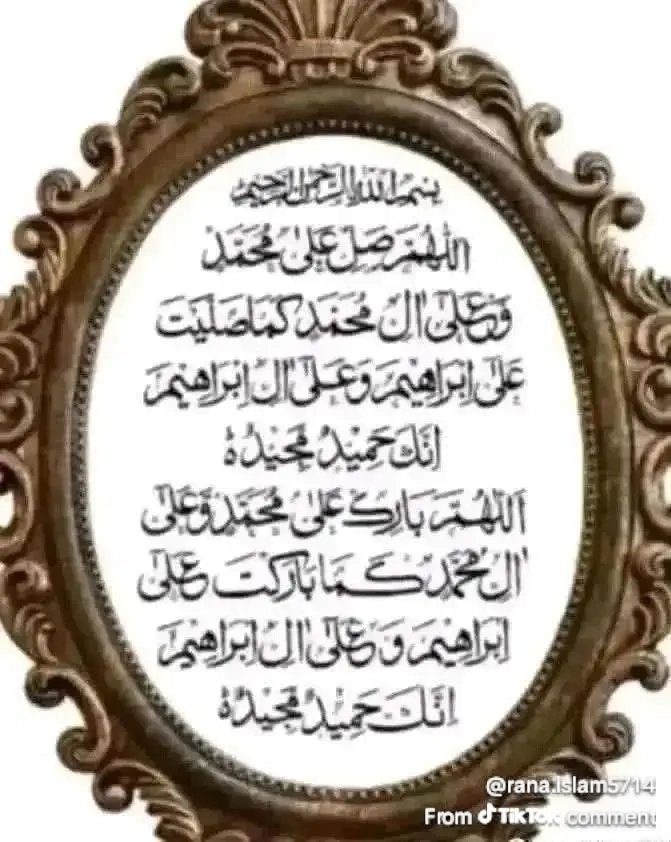 بسم الله الرحمن الرحيم
اَللّٰهُمَّ صَلِّ عَلٰى مُحَمَّدٍ
وَّعَلٰى اٰلِ مُحَمَّدٍ كَمَا صَلَّيْتَ
عَلٰى اِبْرَاهِيْمَ وَعَلٰى اٰلِ اِبْرَاهِيْمَ
اِنَّكَ حَمِيْدٌ مَّجِيْدٌ ۃ
اَللّٰهُمَّ بَارِكْ عَلٰى مُحَمَّدٍ وَّعَلٰى
اٰلِ مُحَمَّدٍ كَمَا بَارَكْتَ عَلٰى
اِبْرَاهِيْمَ وَعَلٰى اٰلِ اِبْرَاهِيْمَ
اِنَّكَ حَمِيْدٌ مَّجِيْدٌ ۃ
@rana.islam5714
From TikTok comment